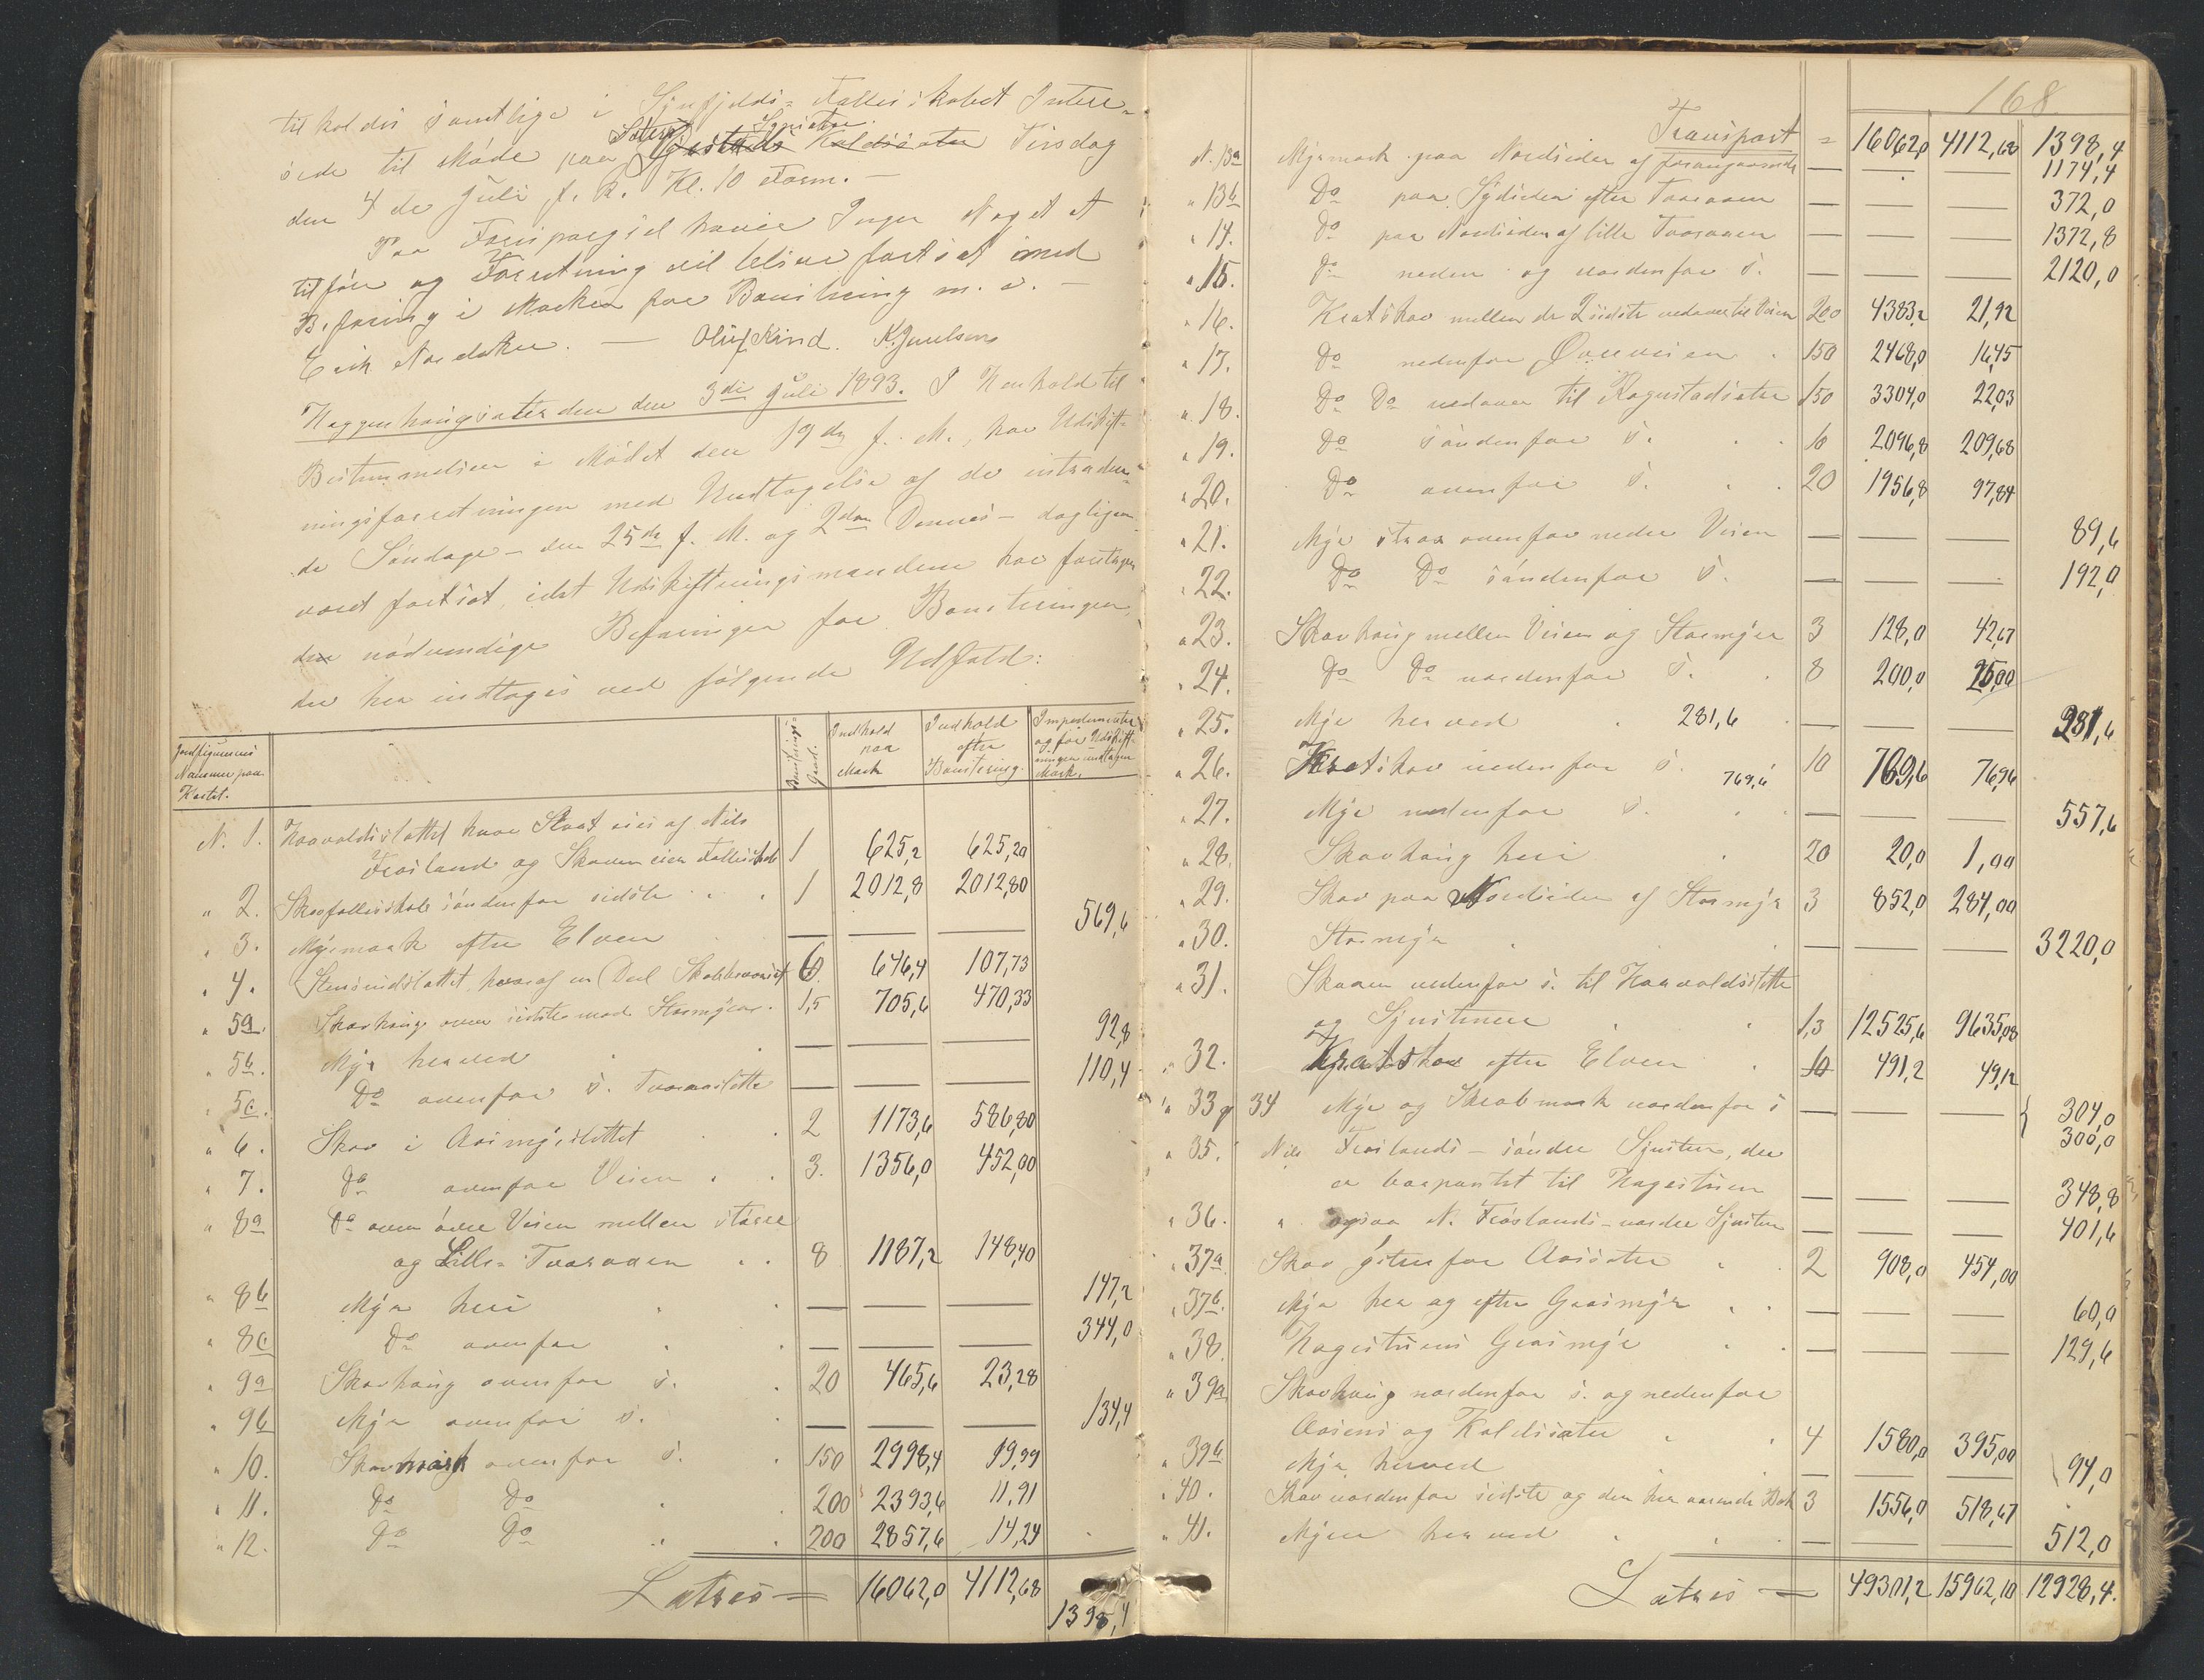 tilholdes samtlige i Synfjelds-Fællesskabet Intere-
Sæter Synstnse.
sede til Møde paa Koldsæter Tirsdag
den 4de Juli f. k. Kl. 10 Form. —
Paa Forespørgsel havde Ingen Noget at
tilføre og Forretning vil blive fortsat med
Befaring i Marken for Bonitering m. v. —
Erik Nordaker. — Oluf Rind. K. Juulsen
Haggenhougsæteren den 3die Juli 1893. I Henhold til
Bestemmelsen i Mødet den 19de f. M., har Udskift-
ningsforretningen med Undtagelse af de indtræden-
de Søndage — den 25de f. M. og 2den Dennes — dagligen
været fortsat, idet Udskiftningsmændene har foretaget
den nødvendige Befaringen for Boniteringen,
der her indtages ved følgende Udfald:
Jordfigurernes Nummer paa Kartet.
Boniterings-Grad.
Indhold paa Mark
Indhold efter Bonitering.
Impedimenter og før Udskiftningen indtagen Mark.
N. 1. Haavoldslættet hvor Slaat eies af Nils
Frøsland og Skoven eier Fællesskab 1 625,2 625,20
" 2. Skovfællesskab søndenfor sidste . . 1 2012,8 2012,80
" 3. Myrmark efter Elven — — — 569,6
" 4. Stensundslættet, hvoraf en Deel Skabbevoxet 6 646,4 107,73
" 5a. Skovhaug oven sidste mod Stormyra . 1,5 705,6 470,33
" 5b. Myr herved — — — 92,8
" 5c. Do ovenfor s. Tvoraaslette — — — 110,4
" 6. Skov i Aasmyrslettet . . 2 1173,6 586,80
" 7. Do ovenfor Veien . . 3. 1356,0 452,00
" 8a Do oven øvre Veien mellem større
og Lille-Tvoraaen . . 8 1187,2 148,40
" 8b Myr heri — — — 147,2
" 8c Do ovenfor — — — 344,0
" 9a Skovhaug ovenfor s. . 20 465,6 23,28
" 9b Myr ovenfor s. — — — 134,4
" 10. Skovmark ovenfor s. . 150 2998,4 19,99
" 11. Do Do . 200 2393,6 11,91
" 12. Do Do . 200 2857,6 14,24
Latris = 16062,0 4112,68 1398,4
168
Transport = 16062,0 4112,68 1398,4
N. 13a Myrmark paa Nordsiden af foregaaende — — — 1174,4
" 13b Do paa Sydsiden efter Tvoraaen — — — 372,0
" 14. Do paa Nordsiden af lille Tvoraaen — — — 1372,8
" 15. Do neden og nordenfor s. — — — 2120,0
" 16. Kratskov mellem de 2 sidste nedover til Veien 200 4383,2 21,92
" 17. Do nedenfor Øvreveien . 150 2468,0 16,45
" 18. Do Do nedover til Ragnstadsæter 150 3304,0 22,03
" 19. Do søndenfor s. . . 10 2096,8 209,68
" 20. Do ovenfor s. . . 20 1956,8 97,84
" 21. Myr strax ovenfor nedre Veien — — — 89,6
" 22. Do Do søndenfor s. — — — 192,0
" 23. Skovhaug mellem Veien og Stormyra 3 128,0 42,67
" 24. Do Do nordenfor s. . 8 200,0 25,00
" 25. Myr herved . 281,6 — — — 281,6
" 26. Kratskov nedenfor s. 769,6 10 769,6 76,96
" 27. Myr nedenfor s. . . — — — 557,6
" 28. Skovhaug heri . 20 20,0 1,00
" 29. Skov paa Nordsiden af Stormyr 3 852,0 284,00
" 30. Stormyr . . — — — 3220,0
" 31. Skoven nedenfor s. til Haavoldslette
og Sjustuene . . 1,3 12525,6 9635,08
" 32. Kratskov efter Elven . 10 491,2 49,12
" 33 og 34 Myr og Skrabmark nordenfor s — — — { 304,0
300,0
" 35. Nils Frøslands — søndre Sjustuen, der
er borpantet til Hagestuen — — — 348,8
" 36. " ogsaa N. Frøslands — nordre Sjustuen — — — 401,6
" 37a Skov østenfor Aassæter . . 2 908,0 454,00
" 37b. Myr her og efter Graasmyr . . — — — 60,0
" 38. Hagestuens Graasmyr . . — — — 129,6
" 39a Skovhaug nordenfor s. og nedenfor
Aasens og Koldsæter . . 4 1580,0 395,00
" 39b Myr herved . — — — 94,0
" 40. Skov nordenfor sidste og den her værende Bæk 3 1556,0 518,67
" 41. Myren herved . . — — — 512,0
Latris — 49301,2 15962,10 12928,4.